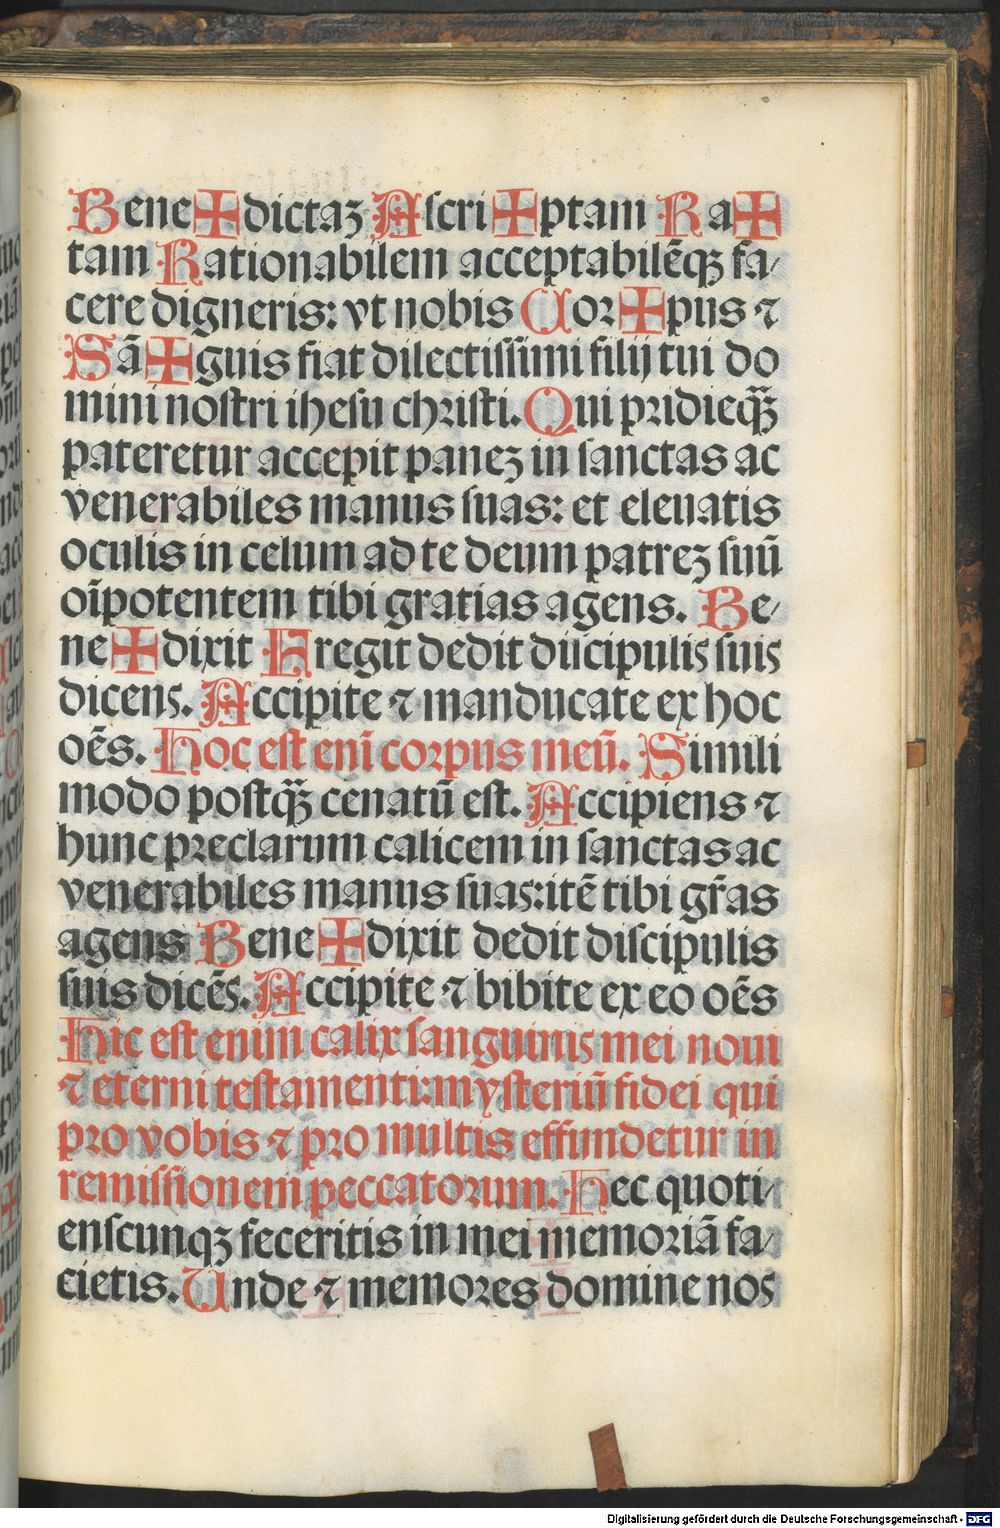 Bene✠dictaꝫ Ascri✠ptam Ra✠
tam Rationabilem acceptabilēqꝫ fa⸗
cere digneris: vt nobis Cor✠pus ⁊
Sā✠guis fiat dilectissimi filij tui do
mini nostri ihesu christi. Qui pridieqꝫ̃
pateretur accepit paneꝫ in sanctas ac
venerabiles manus suas: et eleuatis
oculis in celum ad te deum patreꝫ suū
oīpotentem tibi gratias agens. Be⸗
ne✠dixit Fregit dedit discipulis suis
dicens. Accipite ⁊ manducate ex hoc
oēs. Hoc est enī corpus meū. Simili
modo postqꝫ̃ cenatū est. Accipiens ⁊
hunc preclarum calicem in sanctas ac
venerabiles manus suas: itē tibi gr̄as
agens Bene✠dixit dedit discipulis
suis dicēs. Accipite ⁊ bibite ex eo oēs
Hic est enim calix sanguinis mei noui
⁊ eterni testamenti: mysteriū fidei qui
pro vobis ⁊ pro multis effundetur in
remissionem peccatorum. Hec quoti⸗
enscunqꝫ feceritis in mei memoriā fa⸗
cietis. Unde ⁊ memores domine nos
Digitalisierung gefördert durch die Deutsche Forschungsgemeinschaft - DFG